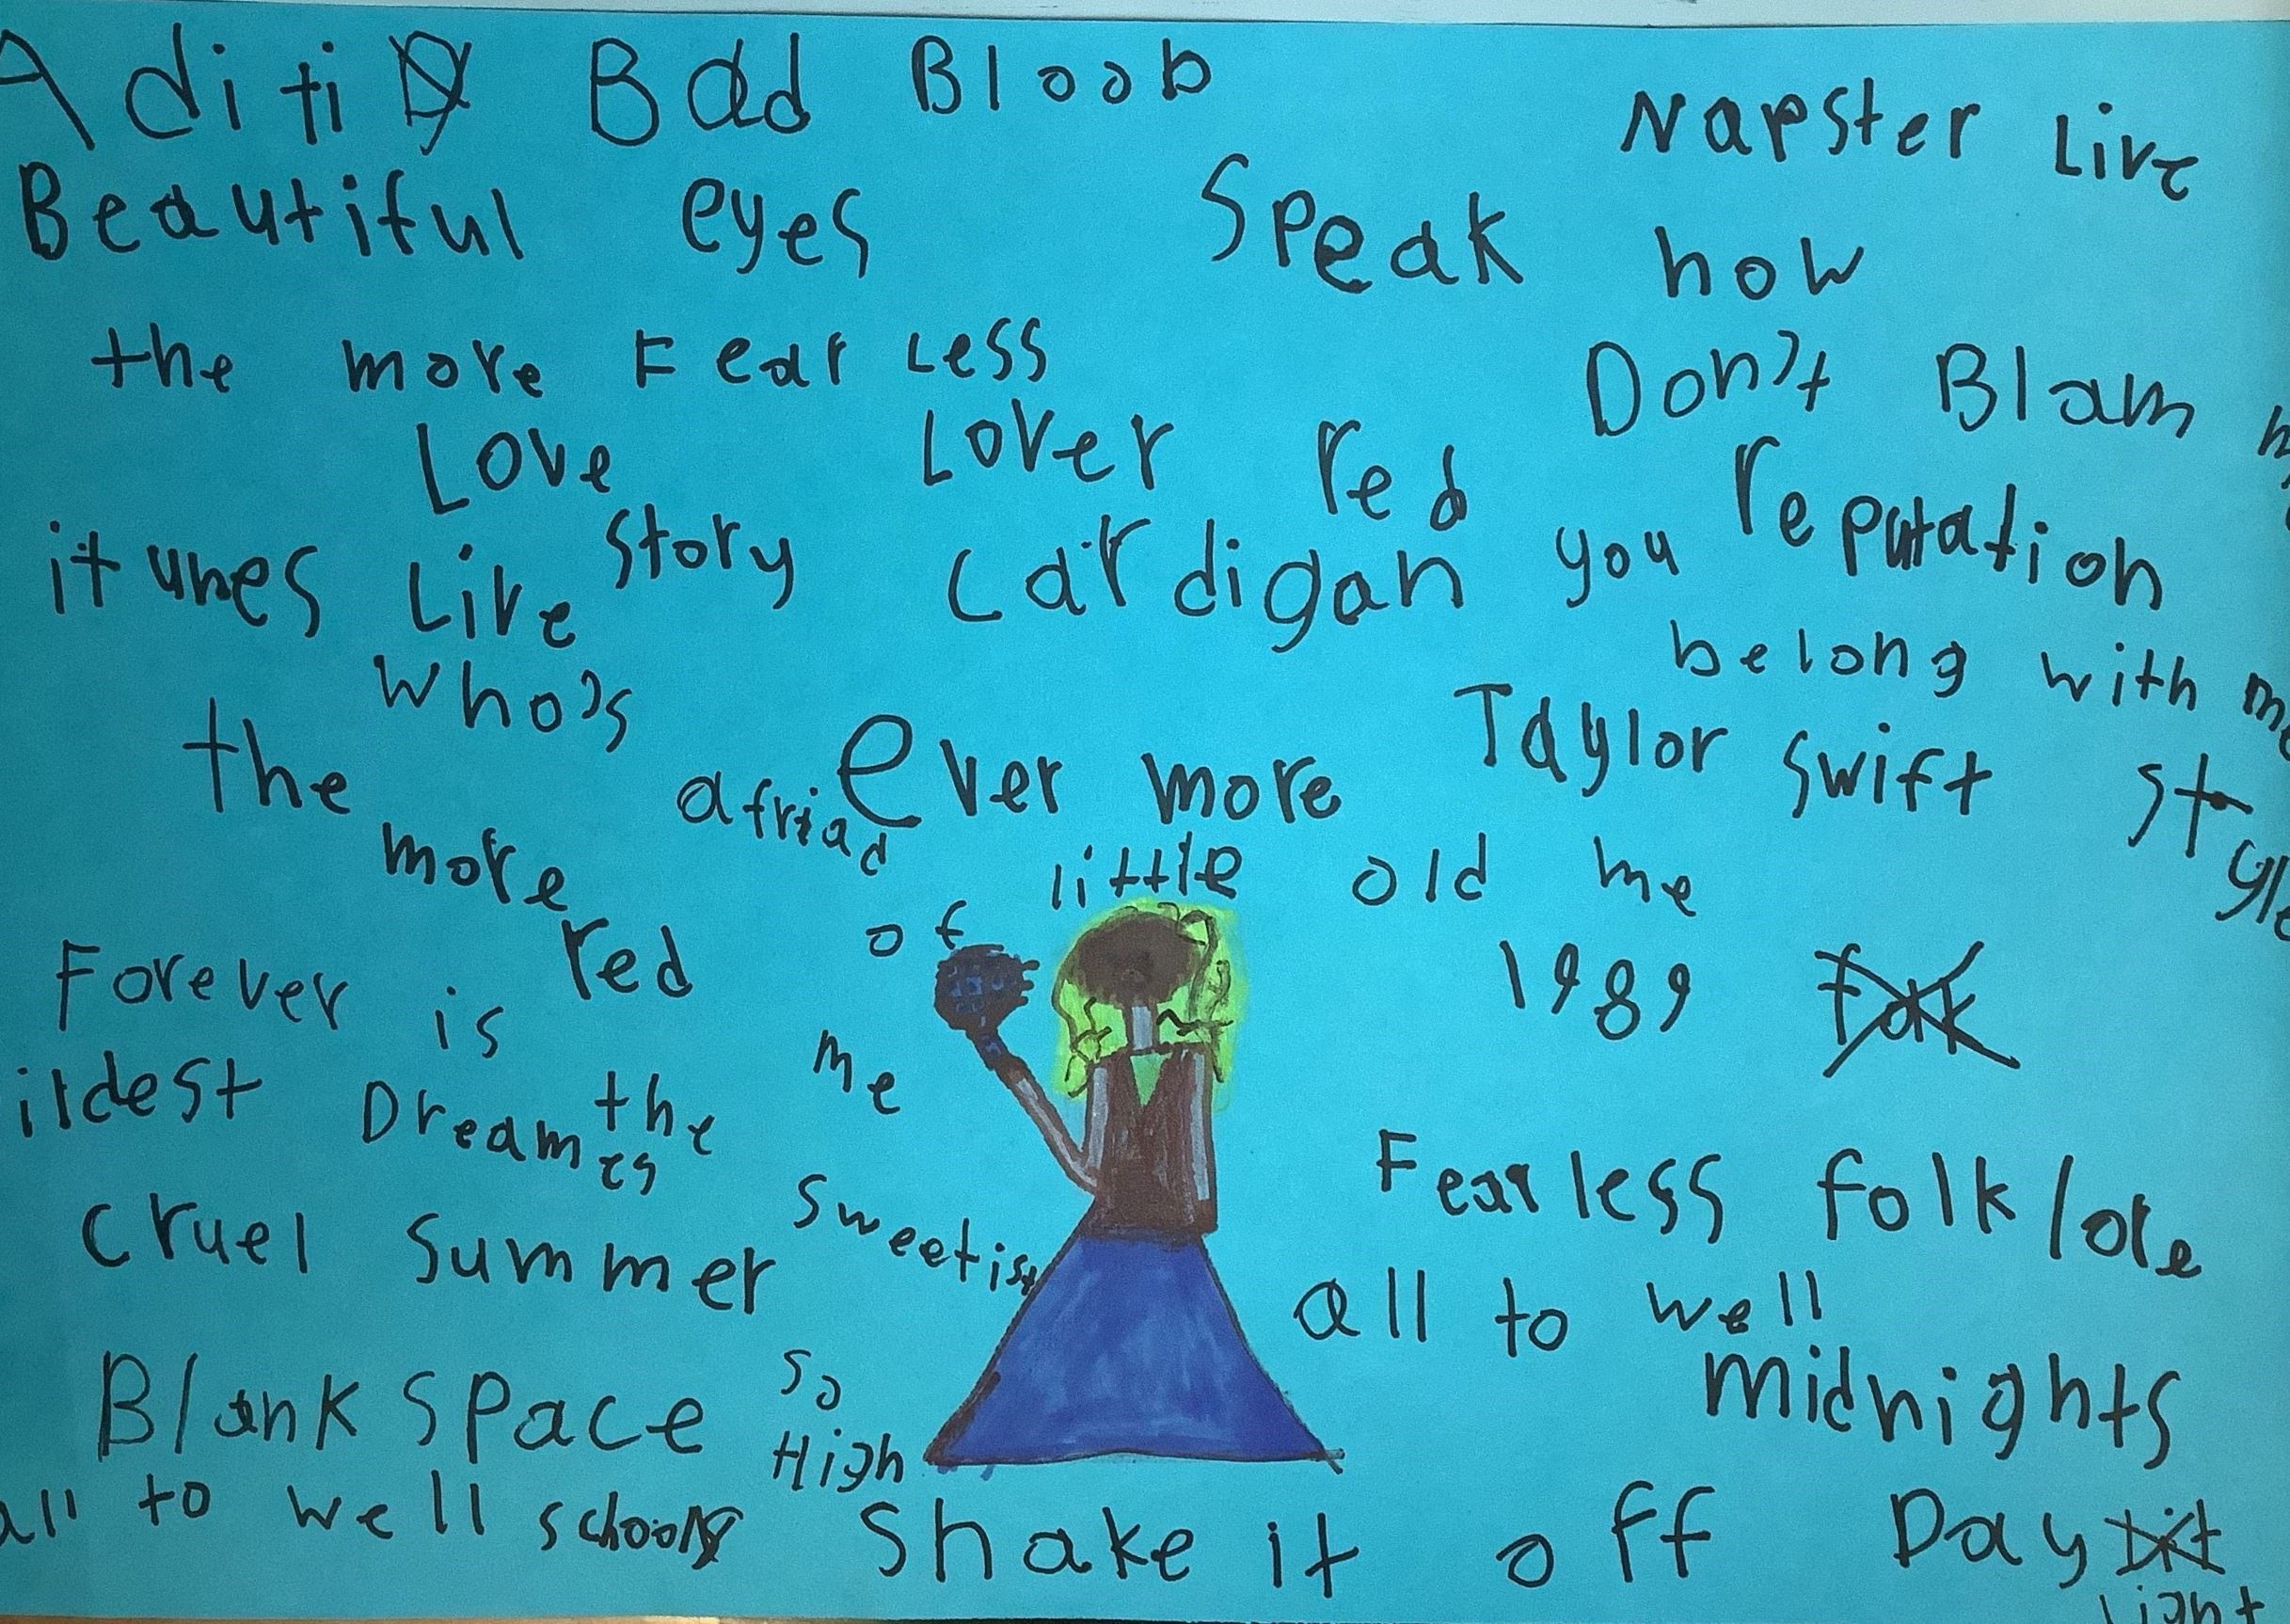 Aditi Bad Bloob
Napster Live
Beautiful eyes
Speak how
the more Fear Less
Don't Blam
Love Story
Lover
red
reputation
itunes Live
cardigan
you belong with me
Who's afriad of little old me
the more red
ever more
Taylor Swift
Style
1989
Forever is
me
ildest Dreames
the
sweetist
Fearless
folklore
cruel summer
all to well
Blank Space
so High
midnights
all to well schools
Shake it off
Day light